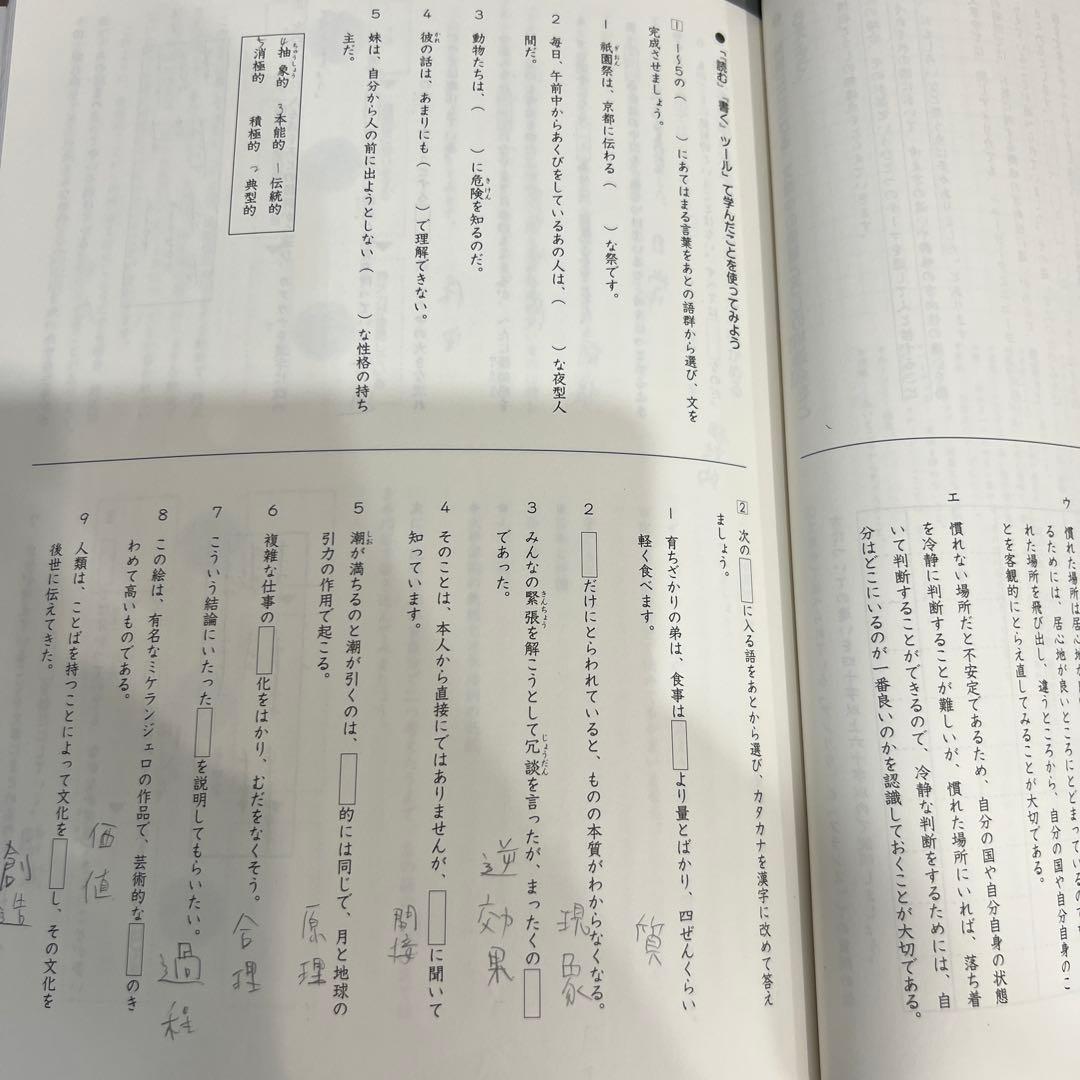 ウ 慣れた場所は居心地が
るためには、居心地が良いところにとどまっているの
れた場所を飛び出し、違うところから、自分の国や自分自身のこ
とを客観的にとらえ直してみることが大切である。
エ 慣れない場所だと不安定であるため、自分の国や自分自身の状態
を冷静に判断することが難しいが、慣れた場所にいれば、落ち着
いて判断することができるので、冷静な判断をするためには、自
分はどこにいるのが一番良いのかを認識しておくことが大切である。
●「「読む」「書く」ツール」で学んだことを使ってみよう
1 1～5の( )にあてはまる言葉をあとの語群から選び、文を
完成させましょう。
1 祇園祭は、京都に伝わる( )な祭です。
ぎおん
2 毎日、午前中からあくびをしているあの人は、( )な夜型人
間だ。
3 動物たちは、( )に危険を知るのだ。
きけん
4 彼の話は、あまりにも( )で理解できない。
かれ
5 妹は、自分から人の前に出ようとしない( )な性格の持ち
主だ。
4抽象的 3本能的 1伝統的
ちゅうしょう
5消極的 積極的 2典型的
2 次の□に入る語をあとから選び、カタカナを漢字に改めて答え
ましょう。
1 育ちざかりの弟は、食事は□より量とばかり、四ぜんくらい
軽く食べます。
質
2 □だけにとらわれていると、ものの本質がわからなくなる。
現象
3 みんなの緊張を解こうとして冗談を言ったが、まったくの□
きんちょう じょうだん
であった。
逆効果
4 そのことは、本人から直接にではありませんが、□に聞いて
知っています。
間接
5 潮が満ちるのと潮が引くのは、□的には同じで、月と地球の
しお
引力の作用で起こる。
原理
6 複雑な仕事の□化をはかり、むだをなくそう。
合理
7 こういう結論にいたった□を説明してもらいたい。
過程
8 この絵は、有名なミケランジェロの作品で、芸術的な□のき
わめて高いものである。
価値
9 人類は、ことばを持つことによって文化を□し、その文化を
後世に伝えてきた。
創造